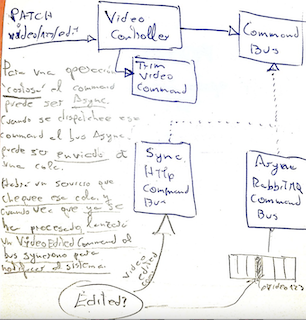 PATCH
video/123/edit
Video
Controller
Command
Bus
Trim
Video
Command
Para una operación
"costosa" el command
puede ser Async.
Cuando se dispatchee ese
command al bus Async.
puede ser enviado a
una cola.
Habrá un servicio que
chequee esa cola y
cuando vea que ya se
ha procesado lanzará
un VideoEditedCommand al
bus syncrono para
notificar al sistema.
Sync.
HTTP
Command
Bus
Async
RabbitMQ
Command
Bus
Video
Edited
Edited?
video123